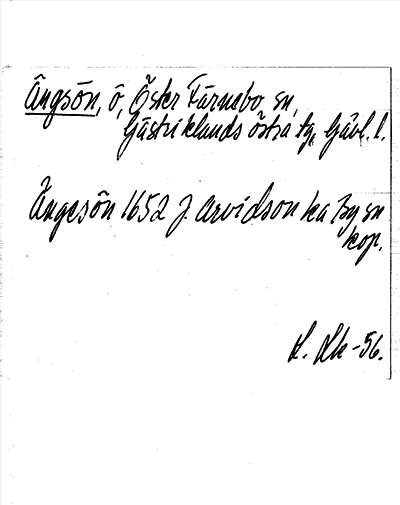 Ängsön, ö, Öster Färnebo sn,
Gästriklands östra tg, Gävl. l.
Ängesön 1652 J. Arvidson ka By sn
kop.
L. Lk -56.